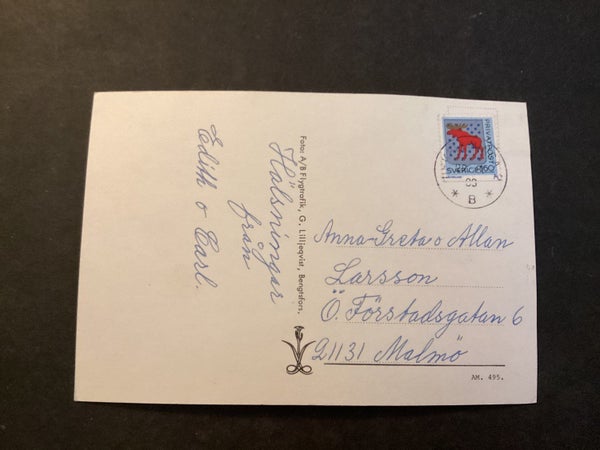 Hälsningar
från
Edith o Carl.
Foto: A/B Flygtrafik, G. Lilljeqvist, Bengtsfors.
PRIVATPOST
SVERIGE
B
Anna-Greta o Allan
Larsson
Ö. Förstadsgatan 6
21131 Malmö
AM. 495.